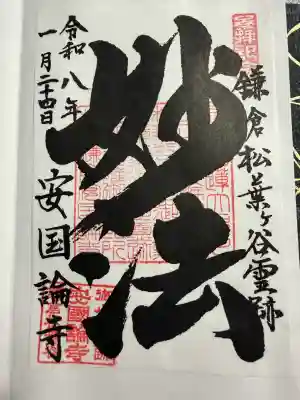 鎌倉松葉ヶ谷霊跡
妙法
令和八年
一月二十四日
安国論寺